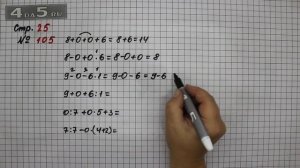 4DA5.RU
Стр. 25
№ 105
8+0+0+6=8+6=14
8-0+0·6=8-0+0=8
9-0-6·1=9-0-6=9-6
9+0+6:1=
0:7+0·5+3=
7:7-0·(4+2)=